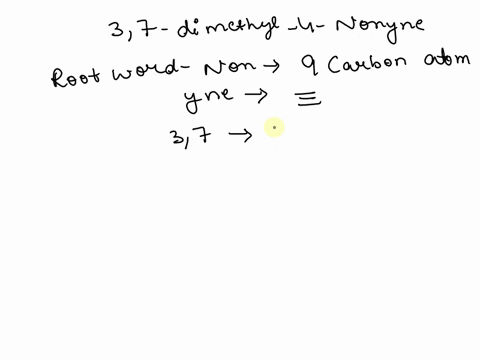 3,7-dimethyl-4-Nonyne
Root word- Non → 9 Carbon atom
yne → ≡
3,7 →